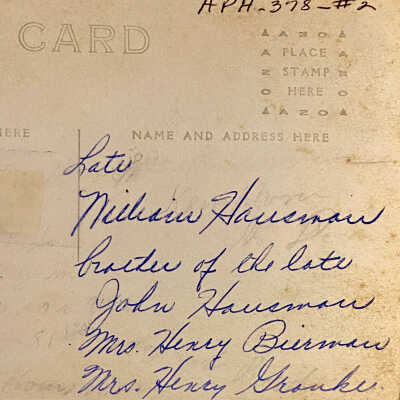 APH-378-#2
CARD
AZO
PLACE
STAMP
HERE
AZO
HERE
NAME AND ADDRESS HERE
Late
William Hausman
brother of the late
John Hausman
Mrs. Henry Bierman
Mrs. Henry